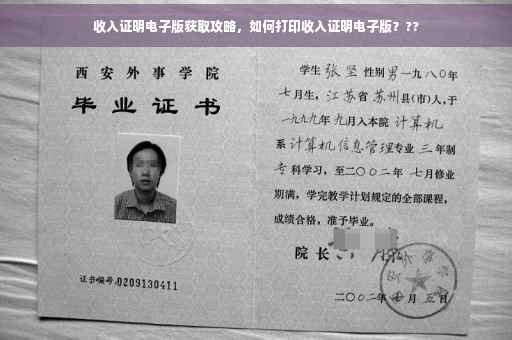 收入证明电子版获取攻略，如何打印收入证明电子版？??
西安外事学院
毕业证书
证书编号:0209130411
学生 张坚 性别男一九八〇年
七月生，江苏省苏州县(市)人,于
一九九九年九月入本院 计算机
系计算机信息管理专业 三 年制
专科学习，至二〇〇二年 七月修业
期满，学完教学计划规定的全部课程，
成绩合格，准予毕业。
院长
二〇〇二年 月五日